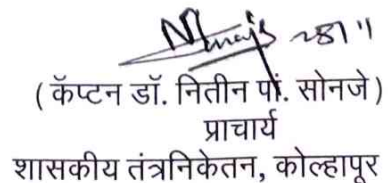 ( कॅप्टन डॉ. नितीन पां. सोनजे )
प्राचार्य
शासकीय तंत्रनिकेतन, कोल्हापूर